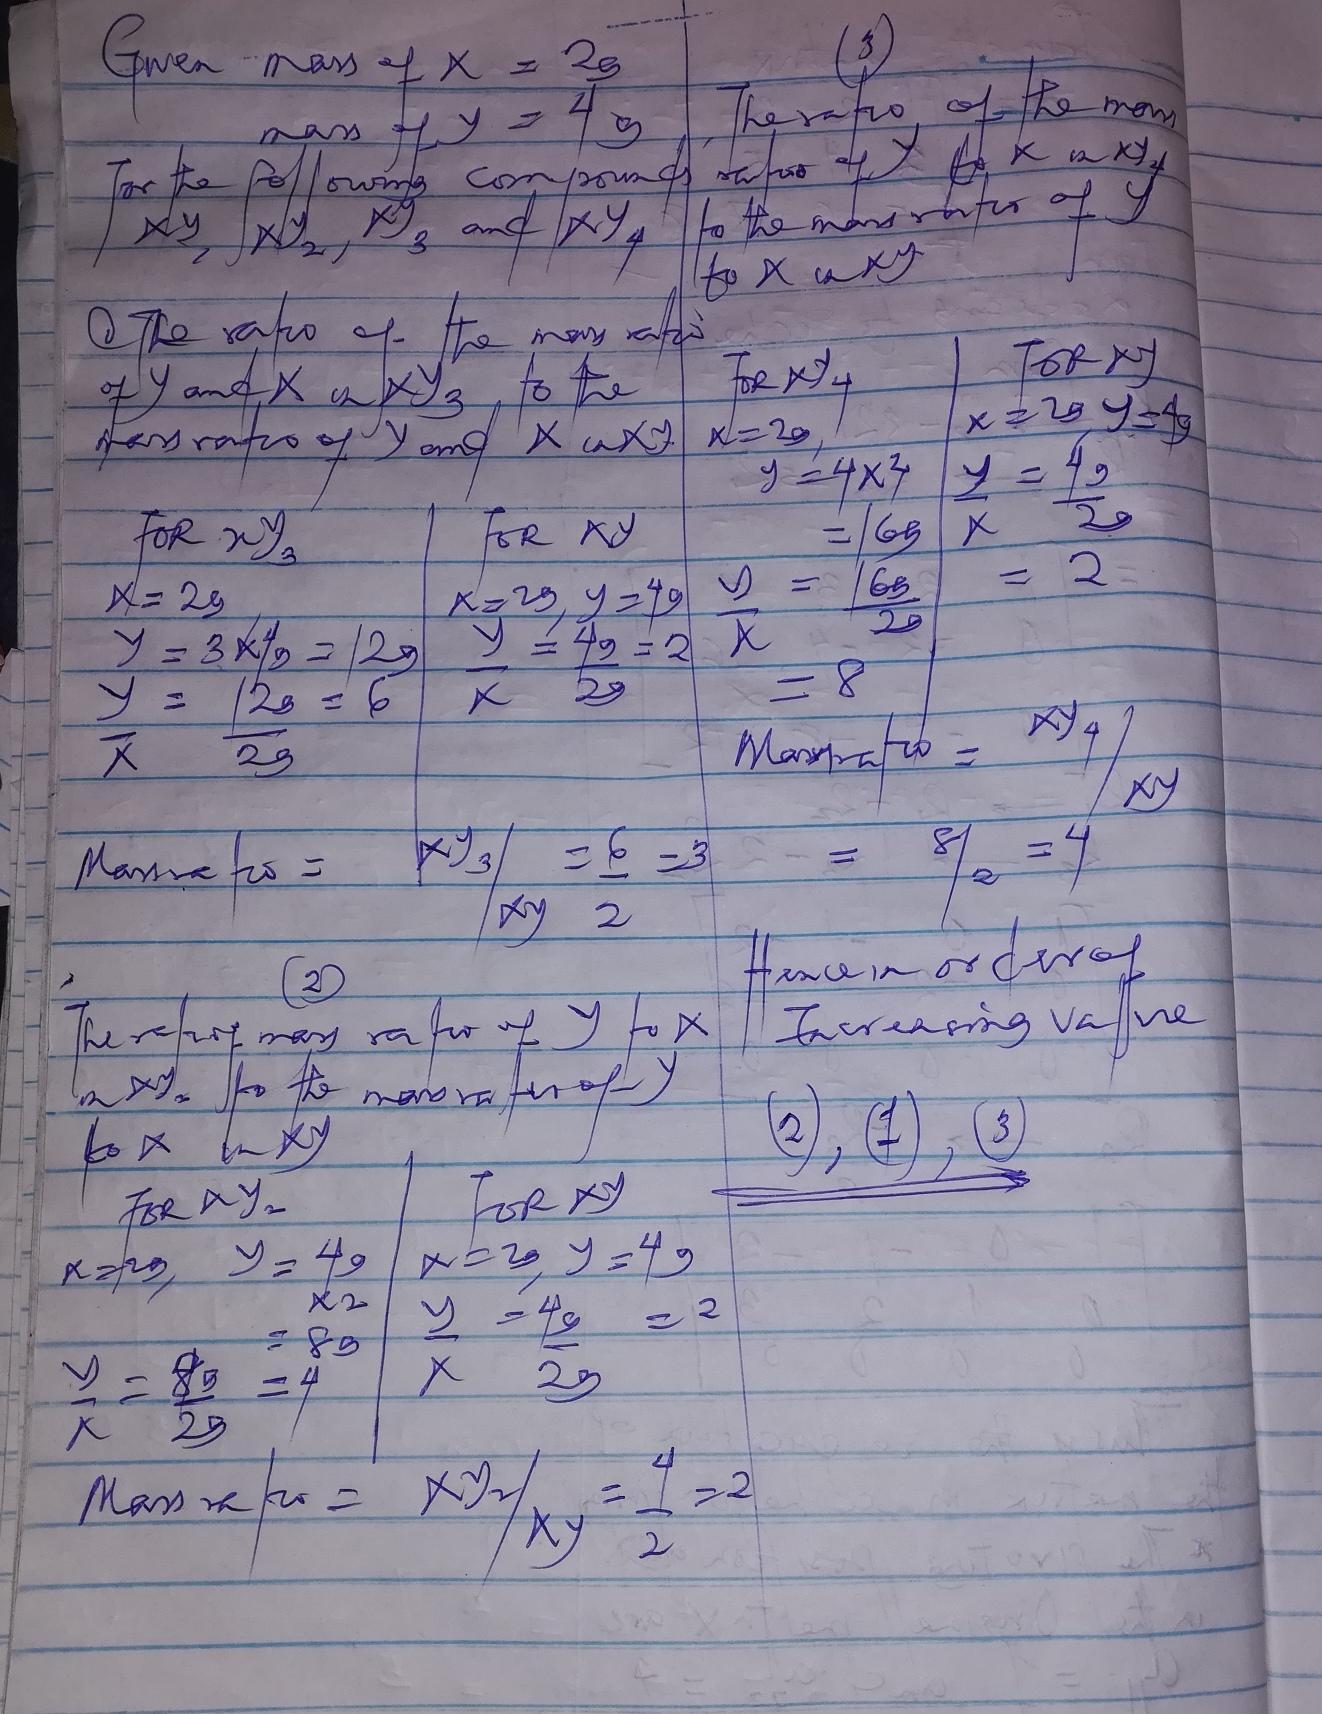 Given mass of X = 2g
mass of y = 4g
For the following compounds
XY, XY2, XY3 and XY4
① The ratio of the mass ratio
of Y and X in XY3 to the
mass ratio of Y and X in XY
FOR XY3
X = 2g
Y = 3x4g = 12g
Y/X = 12g/2g = 6
FOR XY
X = 2g, y = 4g
Y/X = 4g/2g = 2
Mass ratio = XY3/XY = 6/2 = 3
(2)
The ratio of mass ratio of Y to X
in XY2 to the mass ratio of Y
to X in XY
FOR XY2
X = 2g, Y = 4g
x2
= 8g
Y/X = 8g/2g = 4
FOR XY
X = 2g, Y = 4g
Y/X = 4g/2g = 2
Mass ratio = XY2/XY = 4/2 = 2
(3)
The ratio of the mass
ratio of Y to X in XY4
to the mass ratio of Y
to X in XY
FOR XY4
X = 2g,
y = 4x4
= 16g
Y/X = 16g/2g
= 8
FOR XY
X = 2g Y = 4g
Y/X = 4g/2g
= 2
Mass ratio = XY4/XY
= 8/2 = 4
Hence in order of
Increasing value
(2), (1), (3)